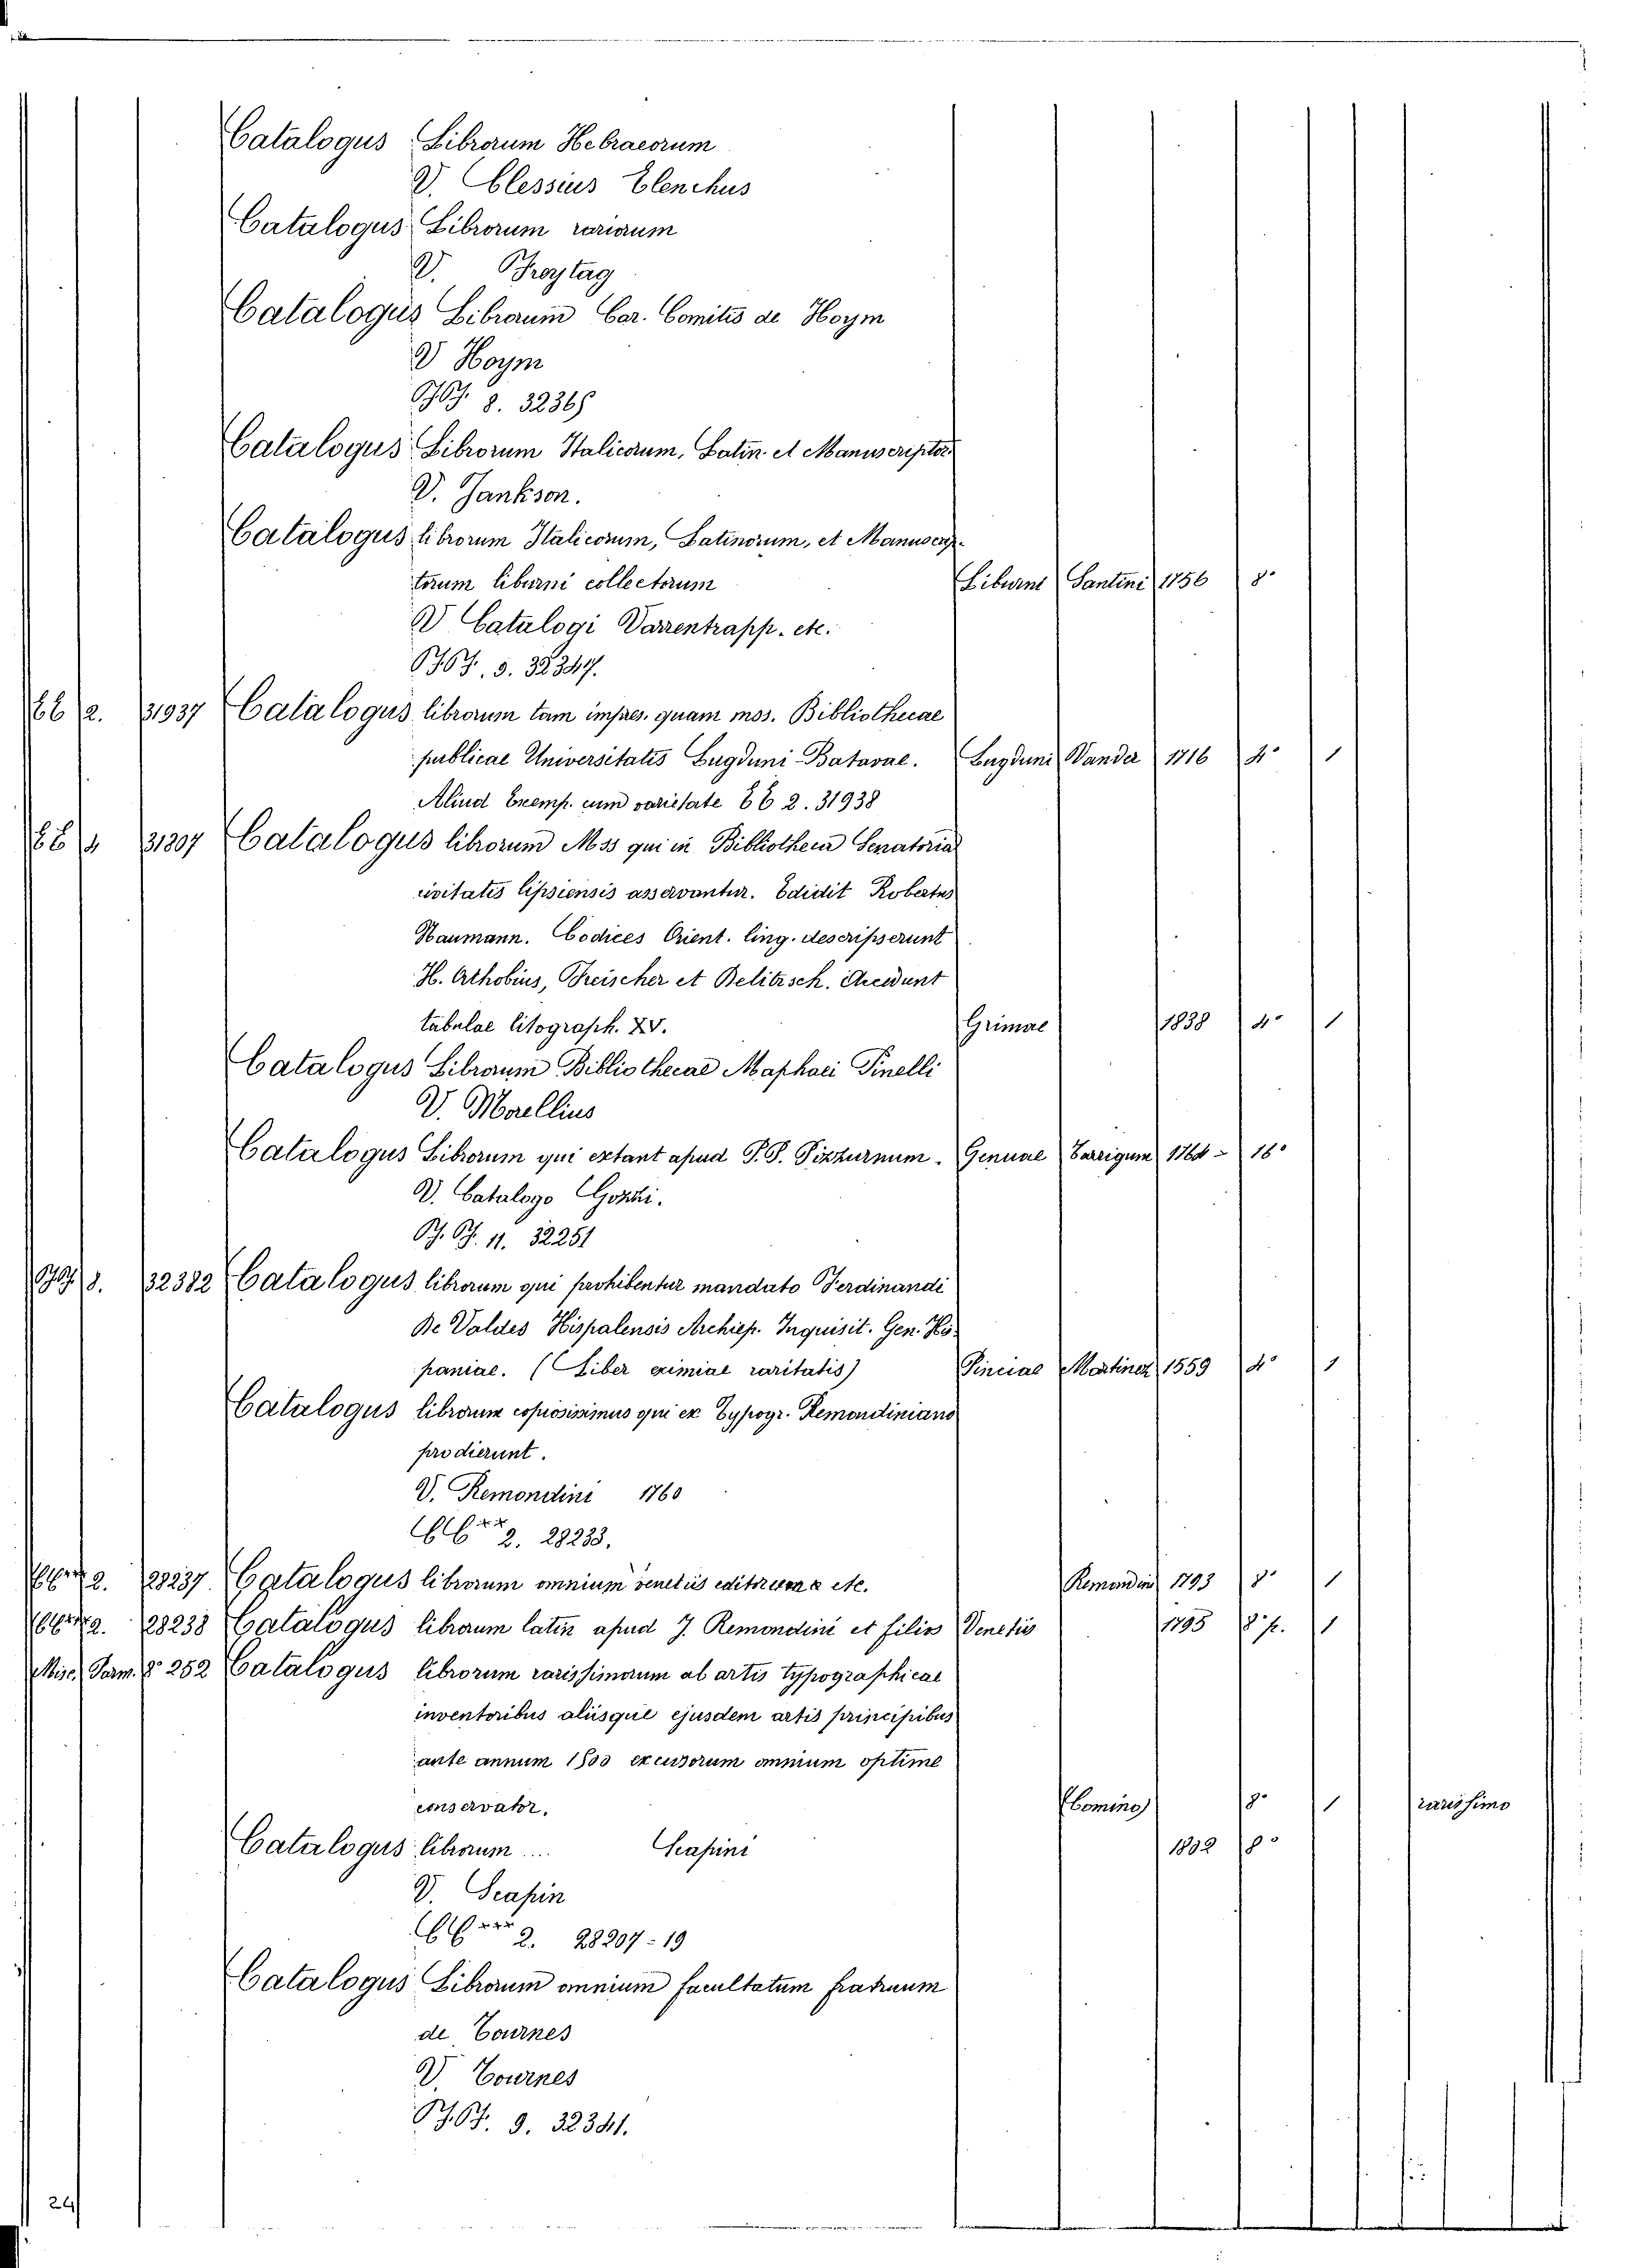 Catalogus Librorum Hebraeorum
V. Clessius Elenchus
Catalogus Librorum rariorum
V. Freytag
Catalogus Librorum Car. Comitis de Hoym
V Hoym
8. 32365
Catalogus Librorum Italicorum, Latin. et Manuscriptor.
V. Jankson.
Catalogus librorum Italicorum, Latinorum, et Manuscrip-
torum liburni collectorum Liburni Santini 1756 8°
V Catalogi Varrentrapp. etc.
5. 32347.
2. 31937 Catalogus librorum tam impres. quam mss. Bibliothecae
publicae Universitatis Lugduni-Batavae. Lugduni Vander 1716 4° 1
Aliud Exemp. cum varietate CC 2. 31938
4 31307 Catalogus librorum Mss qui in Bibliotheca Senatoria
civitatis lipsiensis asservantur. Edidit Robertus
Naumann. Codices Orient. ling. descripserunt
H. Orthobius, Fleischer et Delitzsch. Accedunt
tabulae litograph. XV. Grimae 1838 4° 1
Catalogus Librorum Bibliothecae Maphaei Pinelli
V. Morellius
Catalogus Librorum qui extant apud P. P. Pizzurnum. Genuae Tarrigum 1764 - 16°
V. Catalogo Gozzi.
11. 32251
8. 32382 Catalogus librorum qui prohibentur mandato Ferdinandi
De Valdes Hispalensis Archiep. Inquisit. Gen. His-
paniae. (Liber eximiae raritatis) Pinciae Martinez 1559 4° 1
Catalogus librorum copiosissimus qui ex Typogr. Remondiniano
prodierunt.
V. Remondini 1760
CC** 2. 28233.
2. 28237. Catalogus librorum omnium venetiis editorum etc. Remondini 1793 8° 1
2. 28238 Catalogus librorum latin apud J. Remondini et filios Venetiis 1795 8° p. 1
Misc. Parm. 8° 252 Catalogus librorum rarissimorum ab artis typographicae
inventoribus aliisque ejusdem artis principibus
ante annum 1500 excussorum omnium optime
conservator. Comino 8° 1 rarissimo
Catalogus librorum .... Scapini 1802 8°
V. Scapin
CC*** 2. 28207-19
Catalogus Librorum omnium facultatum fratruum
de Tournes
V. Tournes
9. 32341.
24